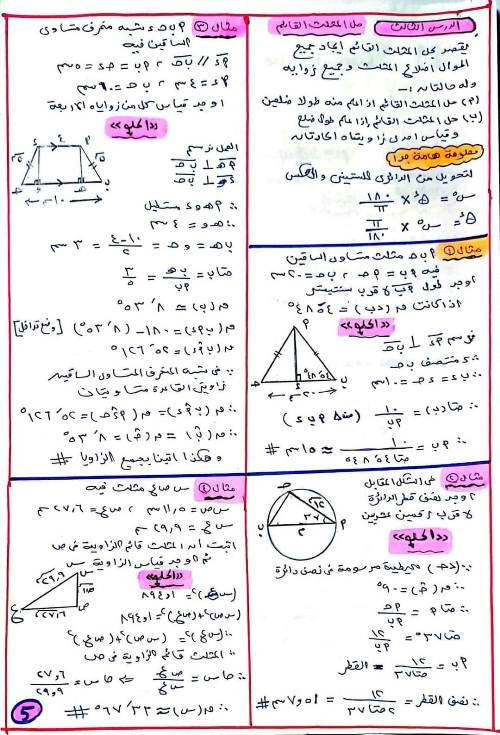 الدرس الثالث حل المثلث القائم
يقصد بحل المثلث القائم ايجاد جميع
اطوال اضلاع المثلث وجميع زواياه
وله حالتان :-
(٢) حل المثلث القائم إذا علم منه طولا ضلعين
(ب) حل المثلث القائم إذا علم طول ضلع
وقياس احدى زاويتاه الحادتان
معلومة هامة جداً
لتحويل من الدائرى للستينى والعكس
س° = هـ^د × ١٨٠/π
هـ^د = س° × π/١٨٠
مثال ١ ٢ ب حـ مثلث متساوى الساقين
فيه ٢ب = ٢حـ ، ب حـ = ٢٠سم
اوجد طول ٢ب لأقرب سنتيمتر
إذا كانت ق(ب) = ٥٤ ٤٨°
«الحلو»
نرسم ٢ء ⊥ ب حـ
ء منتصف ب حـ
∴ ب ء = ء حـ = ١٠سم
∴ حتا ب = ١٠/٢ب (من Δ ٢ ب ء)
∴ ٢ب = ١٠/حتا ٥٤ ٤٨° ≈ ١٥سم #
مثال ٢ فى الشكل المقابل
اوجد نصف قطر الدائرة
لأقرب رقمين عشريين
«الحلو»
∵ (حـ) محيطية مرسومة فى نصف دائرة
∴ ق(حـ) = ٩٠°
∴ حتا ٢ = ٢حـ/٢ب
∴ حتا ٣٧° = ١٢/٢ب
٢ب = ١٢/حتا ٣٧ = القطر
∴ نصف القطر = ١٢/٢حتا ٣٧ = ٧٫٥١سم #
مثال ٣ ٢ ب حـ ء شبه منحرف متساوى
الساقين فيه
٢ء // ب حـ ، ٢ب = حـ ء = ٥سم
٢ء = ٤سم ، ب حـ = ١٠سم
اوجد قياس كل من زواياه الاربعة
«الحلو»
العمل نرسم
٢هـ ⊥ ب حـ
ء و ⊥ ب حـ
∴ ٢ هـ و ء مستطيل
∴ هـ و = ٤سم
ب هـ = و حـ = (١٠-٤)/٢ = ٣سم
حتا ب = ب هـ/٢ب = ٣/٥
ق(ب) ≈ ٨ َ ٥٣°
ق(ب٢ء) = ١٨٠ - (٨ َ ٥٣°)
ق(ب٢ء) = ٥٢ َ ١٢٦°
∵ فى شبه المنحرف المتساوى الساقين
زاويتى القاعدة متساويتان
∴ ق(ب٢ء) = ق(٢ء حـ) = ٥٢ َ ١٢٦°
∴ ق(ب) = ق(حـ) = ٨ َ ٥٣°
وهكذا اتينا بجميع الزوايا #
مثال ٤ س ص ع مثلث فيه
س ص = ١١٫٥سم ، ص ع = ٢٧٫٦سم
س ع = ٢٩٫٩سم
اثبت ان المثلث قائم الزاوية فى ص
ثم اوجد قياس الزاوية س
«الحلو»
(س ع)² = ٨٩٤٫٠١
(س ص)² + (ص ع)² = ٨٩٤٫٠١
∴ (س ع)² = (س ص)² + (ص ع)²
∴ المثلث قائم الزاوية فى ص
∴ حا س = ص ع/س ع ⇒ حا س = ٢٧٫٦/٢٩٫٩
∴ ق(س) ≈ ٢٢ َ ٦٧° #
5